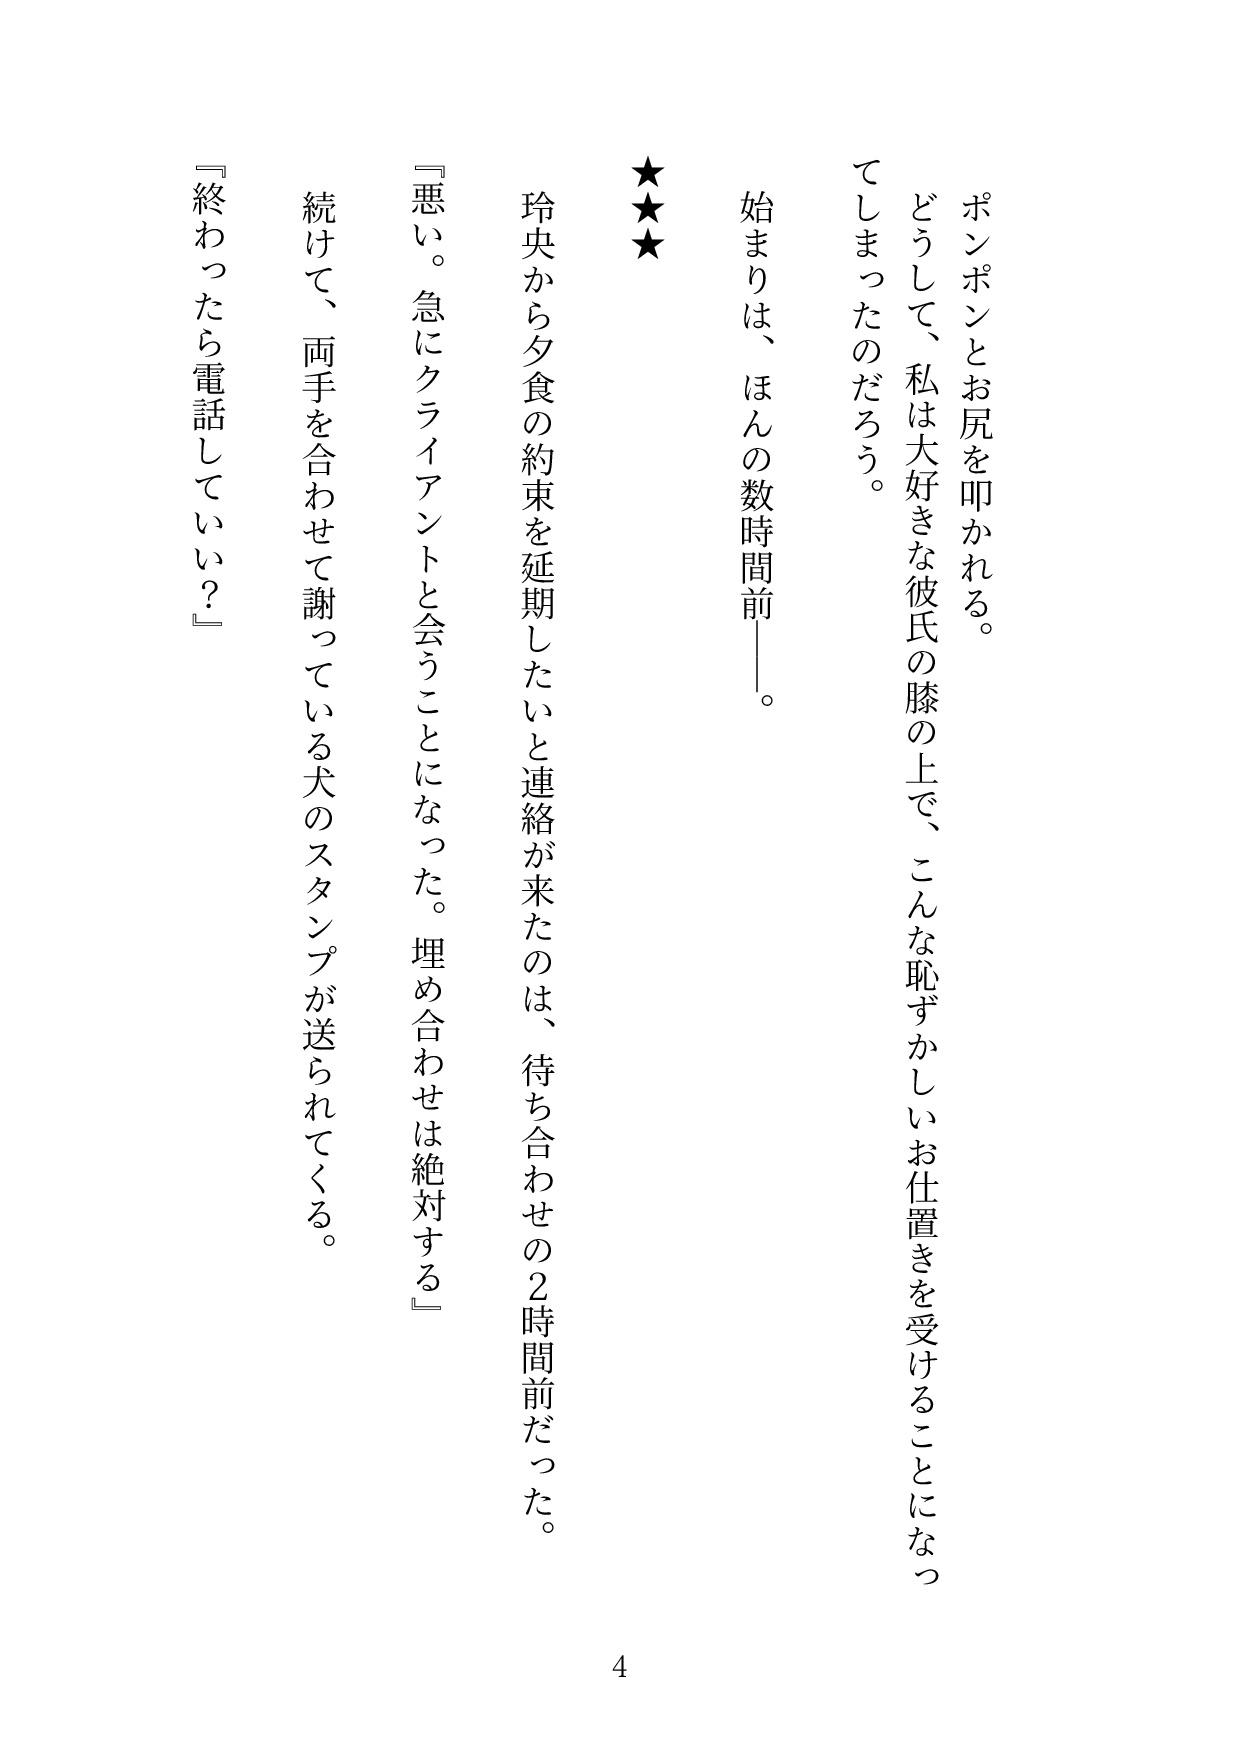 ポンポンとお尻を叩かれる。
　どうして、私は大好きな彼氏の膝の上で、こんな恥ずかしいお仕置きを受けることになっ
てしまったのだろう。
　始まりは、ほんの数時間前――。
★★★
　玲央から夕食の約束を延期したいと連絡が来たのは、待ち合わせの２時間前だった。
『悪い。急にクライアントと会うことになった。埋め合わせは絶対する』
　続けて、両手を合わせて謝っている犬のスタンプが送られてくる。
『終わったら電話していい？』
4